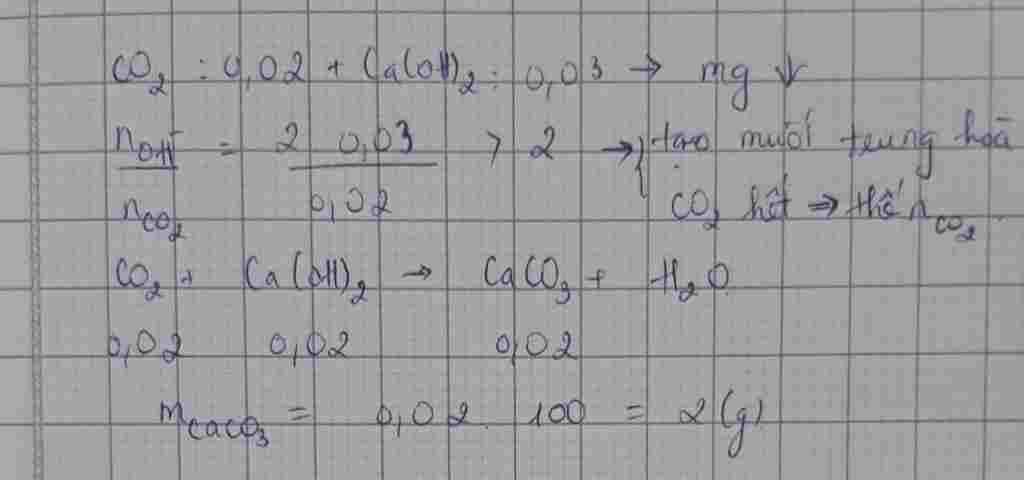 CO2 : 0,02 + Ca(OH)2 : 0,03 → mg ↓
nOH⁻ / nCO2 = 2 0,03 / 0,02 > 2 → { tạo muối trung hoà
CO2 hết ⇒ thế nCO2
CO2 + Ca(OH)2 → CaCO3 + H2O
0,02 0,02 0,02
mCaCO3 = 0,02 . 100 = 2 (g)